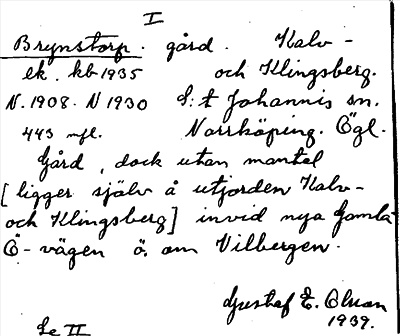 I
Brynstorp. gård. Kalv-
ek. kb 1935 och Klingsberg.
N. 1908. N 1930 S:t Johannis sn.
443 mfl. Norrköping. Ögl.
Gård, dock utan mantal
[ligger själv å utjorden Kalv-
och Klingsberg] invid nya Gamla
Ö-vägen ö. om Vilbergen.
Gustaf E. Olsson
1939.
Se II